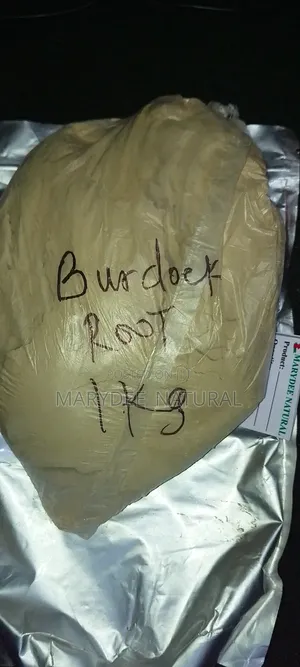 Burdock
ROOT
MARYDEE NATURAL
1Kg
MARYDEE NATURAL
Product: